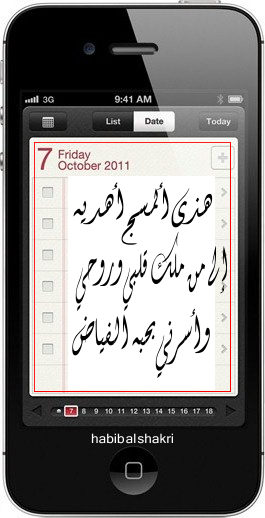 3G 9:41 AM
List Date Today
7 Friday
October 2011
هذى ألمسج أهديه
إلى من ملك قلبي وروحي
وأسرني بحبه ألفياض
7 8 9 10 11 12 13 14 15 16 17 18
habibalshakri